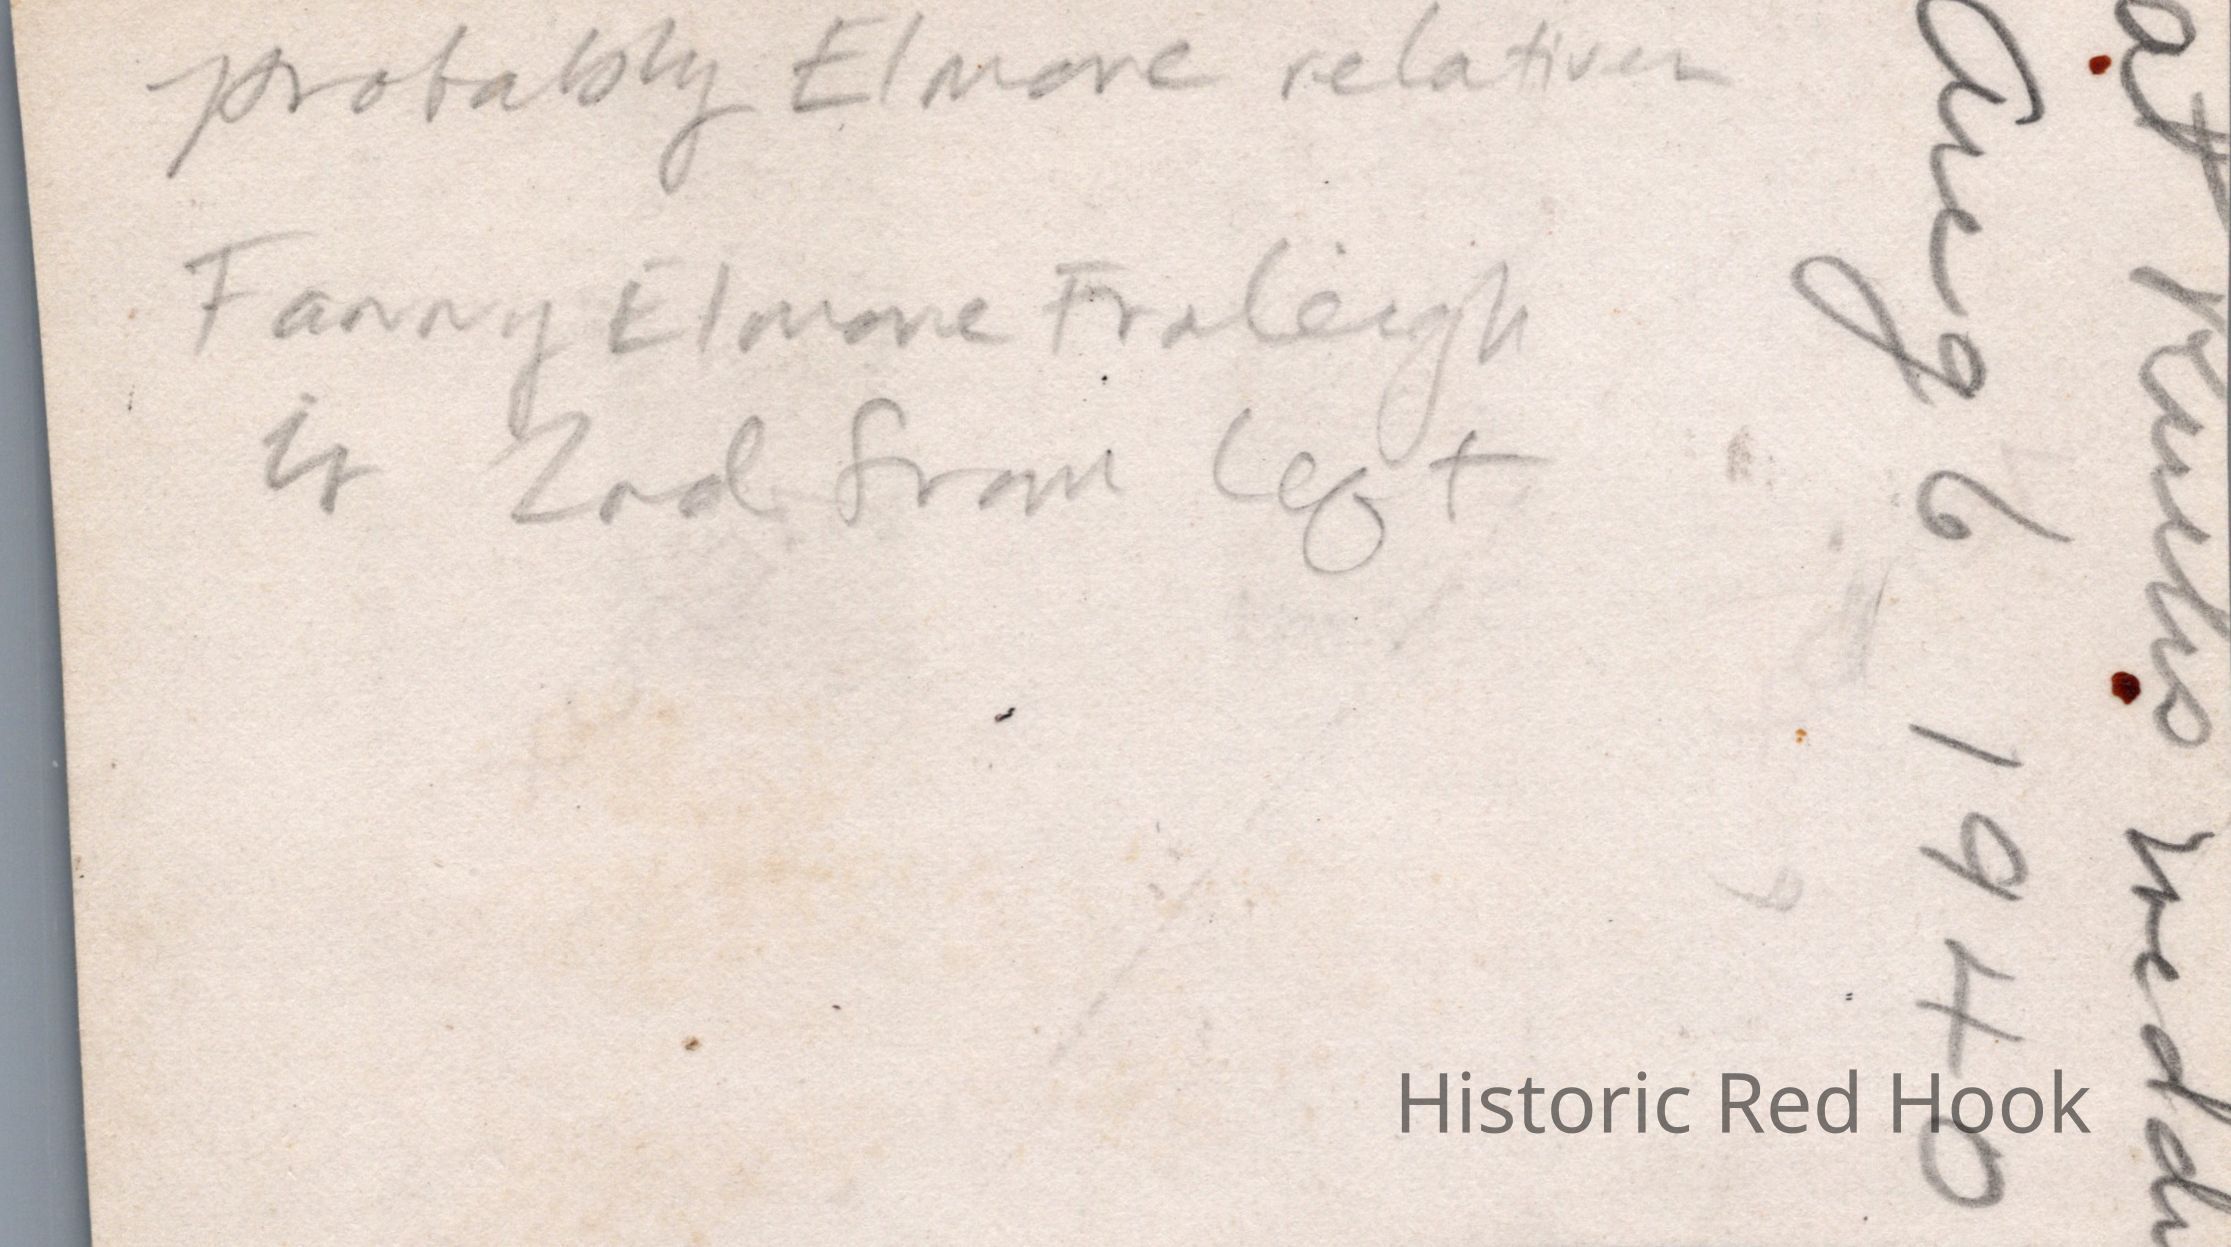 probably Elmore relatives
Fanny Elmore Fraleigh
is 2nd from left
at wedd
Aug 6 1940
Historic Red Hook